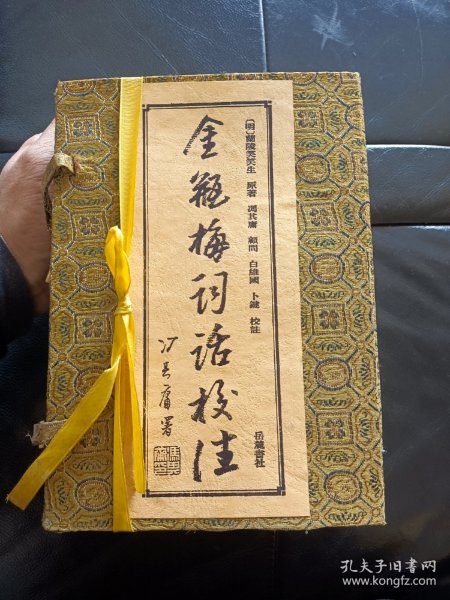 〔明〕蘭陵笑笑生 原著 馮其庸 顧問 白維國 卜鍵 校註
金瓶梅词话校注
冯其庸署
岳麓書社
孔夫子旧书网
www.kongfz.com